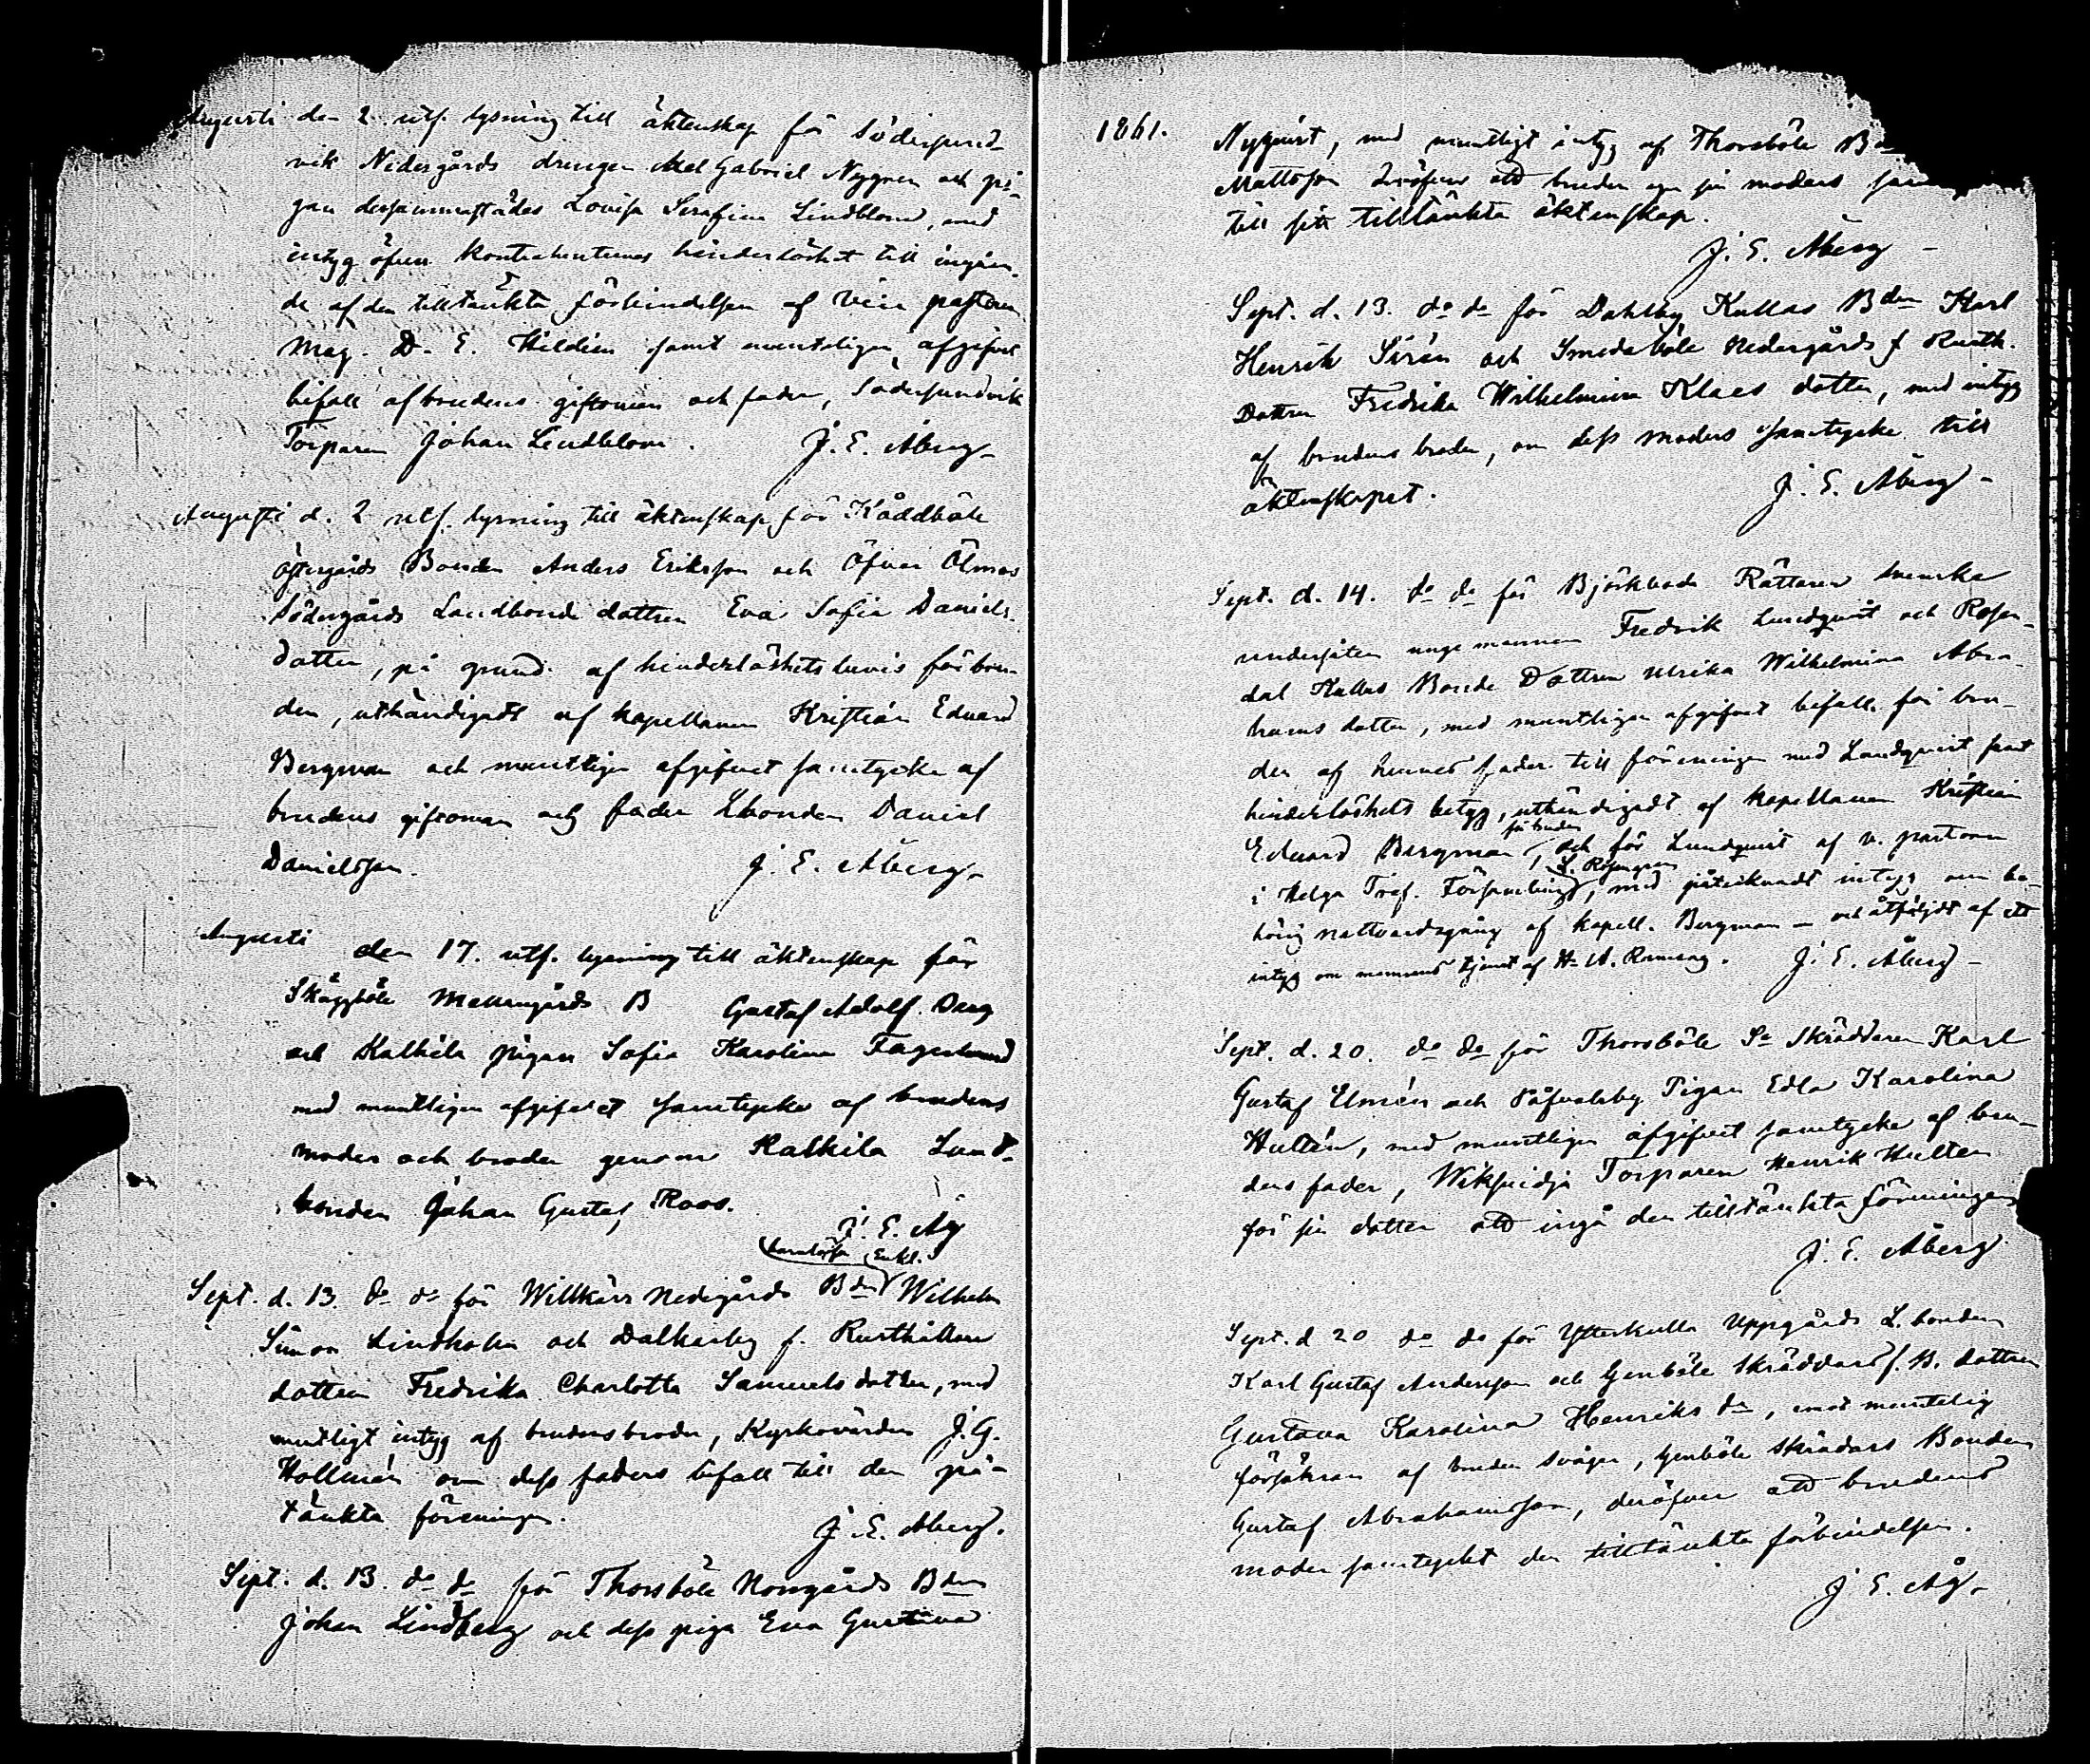 Augusti den 2 utf. lysning till äktenskap för Södersund-
vik Nedergårds drengen Axel Gabriel Nygren och pi-
gan dersammastädes Lovisa Serafina Lindblom, med
intyg öfver kontrahenternas hinderlöshet till ingåen-
de af den tilltänkta förbindelsen af vice pastorn
Mag. D. E. Hildéen samt munteligen afgifvet
bifall af brudens giftoman och fader, Södersundvik
Torparen Johan Lindblom. J. E. Åberg
Augusti d. 2 utf. lysning till äktenskap för Kåddböle
Östergårds Bonden Anders Eriksson och Öfver Ölmos
Södergårds Landbonde dottren Eva Sofia Daniels-
dotter, på grund af hinderlöshets bevis för bru-
den, uthändigadt af kapellanen Kristian Eduard
Bergman och muntligen afgifvet samtycke af
brudens giftoman och fader Lbonden Daniel
Danielsson. J. E. Åberg
Augusti den 17. utf. lysning till äktenskap för
Skäggböle Mellangårds B Gustaf Adolf Berg
och Kalkila pigan Sofia Karolina Fagerlund
med muntligen afgifvet samtycke af brudens
moder och broder genom Kalkila Land-
bonden Johan Gustaf Roos.
J. E. Åg
Enkl.
Sept. d. 13. do do för Willkärr Nedergårds Bden Wilhelm
Simon Lindholm och Dalkarby f. Rusthållare
dottren Fredrika Charlotta Samuels dotter, med
muntligt intyg af brudens broder, Kyrkovärden J. G.
Hollmén om dess faders bifall till den på-
tänkta föreningen.
J. E. Åberg.
Sept. d. 13. do do för Thorsböle Norrgårds Bden
Johan Lindberg och dess piga Eva Gustava
1861. Nyqvist, med muntligt intyg af Thorsböle
Mattsson deröfver att bruden eger sin moders
till sitt tilltänkta äktenskap.
J. E. Åberg
Sept. d. 13. do do för Dahlby Kullas Bden Karl
Henrik Sirén och Smedsböle Nedergårds f Rusth.
Dottren Fredrika Wilhelmina Klaes dotter, med intyg
af brudens broder, om dess moders samtycke till
äktenskapet. J. E. Åberg
Sept. d. 14. do do för Björkboda Rättaren svenska
undersåten unge mannen Fredrik Lundqvist och Rosen-
dal Kullas Bonde Dottren Ulrika Wilhelmina Abra-
hams dotter, med muntligen afgifvet bifall för bru-
den af hennes fader till föreningen med Lundqvist samt
hinderlöshets betyg, uthändigadt af kapellanen Kristian
för bruden
Eduard Bergman, och för Lundqvist af v. pastorn
L. Rosengren
i Helga Tref. Församling, med påtecknadt intyg om be-
hörig nattvardsgång af kapell. Bergman – och åtföljdt af ett
intyg om mannens tjenst af H. A. Ramsay. J. E. Åberg
Sept. d. 20. do do för Thorsböle Sn Skräddaren Karl
Gustaf Elmén och Påfvalsby Pigan Edla Karolina
Hultén, med muntligen afgifvet samtycke af bru-
dens fader, Torparen Henrik Hulten
för sin dotter att ingå den tilltänkta föreningen
J. E. Åberg
Sept. d 20 do do för Ytterkulla Uppgårds L. bonden
Karl Gustaf Andersson och Genböle Skräddars f. B. dottren
Gustava Karolina Henriks dr, med muntelig
försäkran af bruden svåger, Genböle Skrädars Bonden
Gustaf Abrahamsson, deröfver att brudens
moder samtyckt den tilltänkta förbindelsen.
J. E. Åg